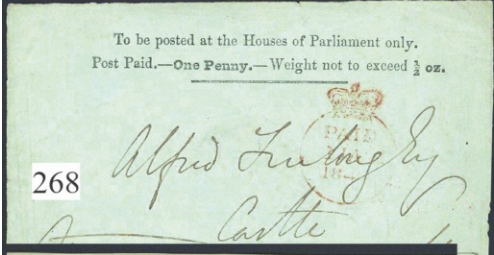 To be posted at the Houses of Parliament only.
Post Paid.—One Penny.—Weight not to exceed ½ oz.
PAID
18
Alfred Esq
268
Castle